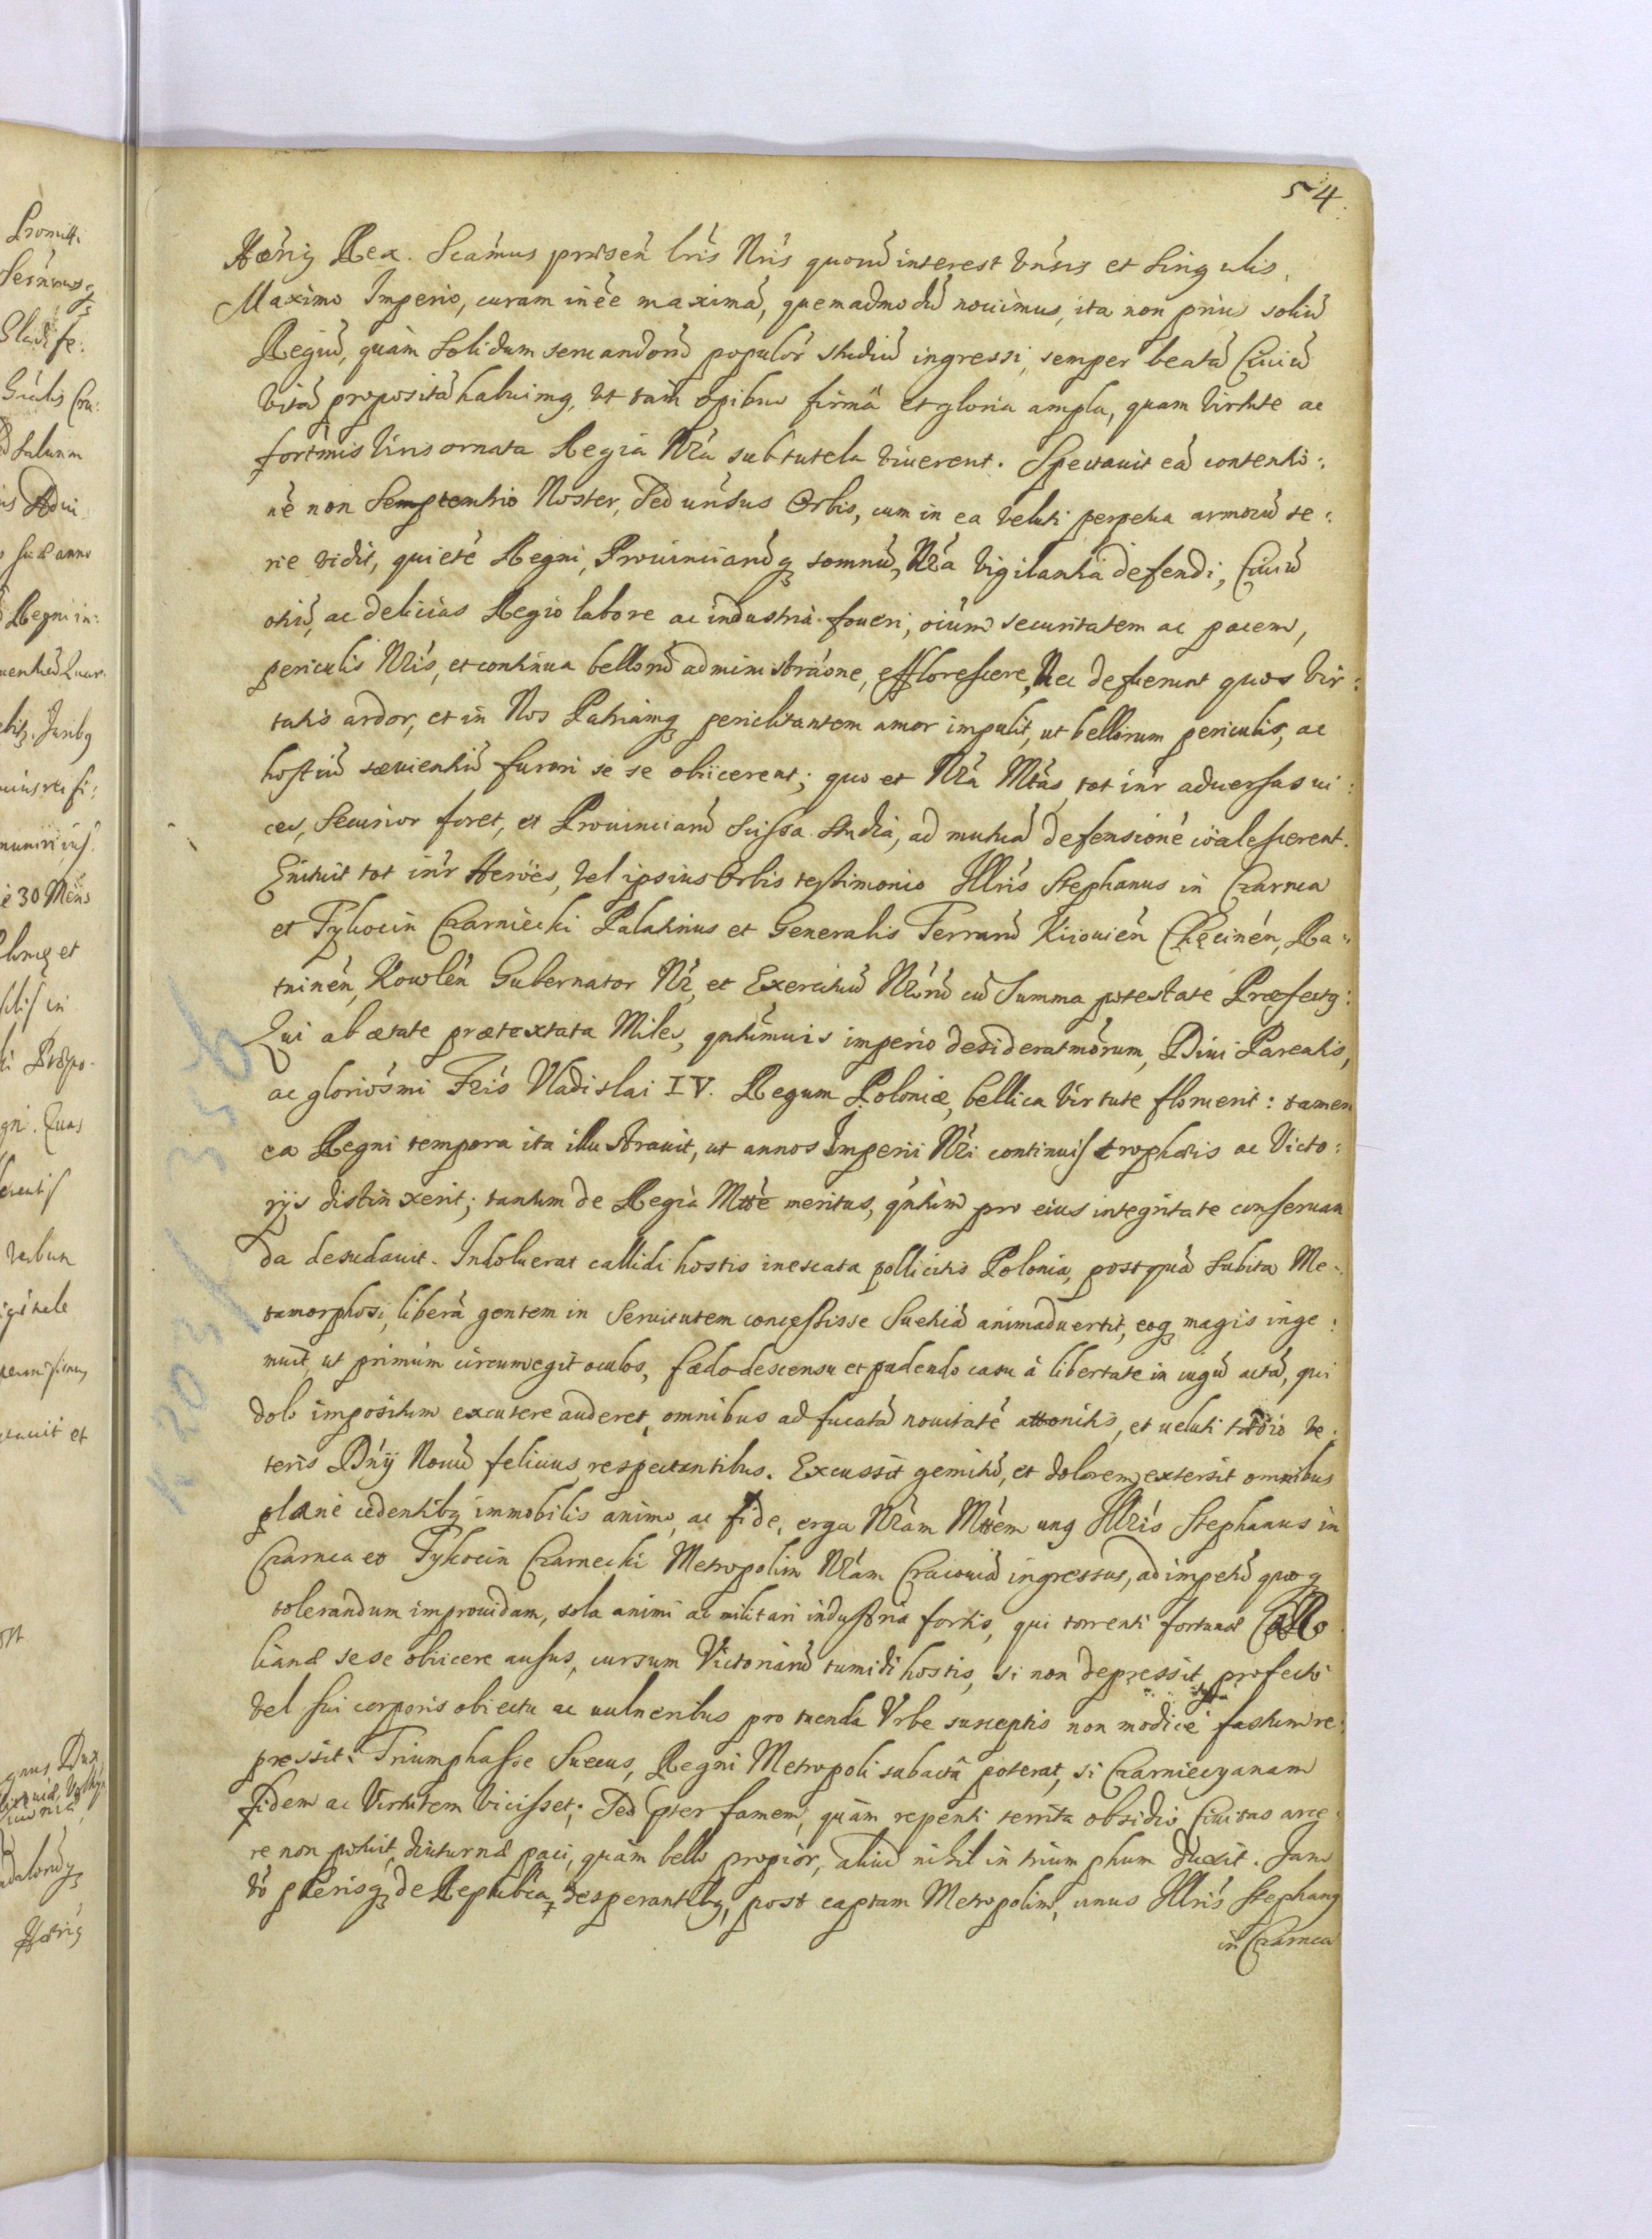 54
Hæriq Rex. Scámus præsen̄ lr̄is Nr̄is quorū interest vn̄sis et singulis,
Maximo Imperio, curam inēe maximā, quemadmodū nouimus, ita non prius soliū
Regiū, quàm solidum seruandorū populor̄ studiū ingressi, semper beatā Ciuiū
vitā propositā habuimq, vt tam opibus firmâ et gloria ampla, quam virtute ac
fortm̄is viris ornata Regia Nr̄a sub tutela viuerent. Spectauit eā contentio:
nē non Semptentrio Noster, Sed vn̄sus Orbis, cum in ea veluti perpetua armorū se:
rie vidit, quietē Regni, Prouinciarūq somnū, Nr̄a Vigilantia defendi, Ciuiū
otiū, ac delicias Regio labore ac industria foueri, oiūm securitatem ac pacem,
periculis Nr̄is, et continua bellorū administrāone, efflorescere, Nec defuerunt quos vir:
tutis ardor, et in Nos Patriamq periclitantem amor impulit, ut bellorum periculis, ac
hostiū sæuientiū furori se se obiicerent; quo et Nr̄a Mt̄as, tot in̄r aduersas ui:
ces, Securior foret, et Prouinciarū scissa studia, ad mutuā defensionē coalescerent.
Enituit tot in̄r Heroës, vel ipsius Orbis testimonio Illr̄is Stephanus in Czarnca
et Tykocin Czarniecki Palatinus et Generalis Terrarū Kiiouien̄ Chęcinen̄, Ra:
tninen̄, Kowlen̄ Gubernator Nr̄, et Exercituū Nr̄orū cū Summa potestate Præfectq:
Qui ab ætate prætextata Miles, qntūmuis imperio desideratmōrum, Diui Parentis,
ac gloriosm̄i Fr̄is Vladislai IV. Regum Poloniæ, bellica virtute floruerit: tamen
ea Regni tempora ita illustrauit, ut annos Imperii Nr̄i continuis trophæis ac Victo:
rijs distinxerit; tantum de Regia Mtt̄e meritus, qn̄tum pro eius integritate conseruan
da desudauit. Indoluerat callidi hostis inescata pollicitis Polonia, postquā subita Me:
tamorphosi, liberā gentem in Seruitutem concessisse Suetiā animaduertit, eoq magis inge:
muit, ut primùm circumegit oculos, fœdo descensu et pudendo casu à libertate in iugū actā, qui
dolo impositum excutere auderet, omnibus ad fucatā nouitatē attonitis, et ueluti ve:
teris Dn̄ij Nouū felicius respectantibus. Excussit gemitū, et dolorem extersit omnibus
planè cedentibq immobilis animo, ac fide, erga Nr̄am Mtt̄em unq Illr̄is Stephanus in
Czarnca et Tykocin Czarnecki Metropolim Nr̄am Cracouiā ingressus, ad impetū quoq
tolerandum improuidam, sola animi ac militari industria fortis, qui torrenti fortunæ
lianæ sese obiicere ausus, cursum Victoriarū tumidi hostis, si non depressit, profecto
vel sui corporis obiectu ac uulneribus pro tuenda Vrbe susceptis non modicè fastum re:
pressit. Triumphasse Suecus, Regni Metropoli subactâ poterat, si Czarniecyanam
fidem ac Virtutem vicisset; Sed pter famem, quàm repenti territa obsidio Ciuitas arce:
re non potuit, diuturnæ paci, quàm bello propior, aliud nihil in triumphum duxit. Jam
vō plerisq de Republica desperantibq, post captam Metropolim, unus Illr̄is Stephanq
in Czarnca